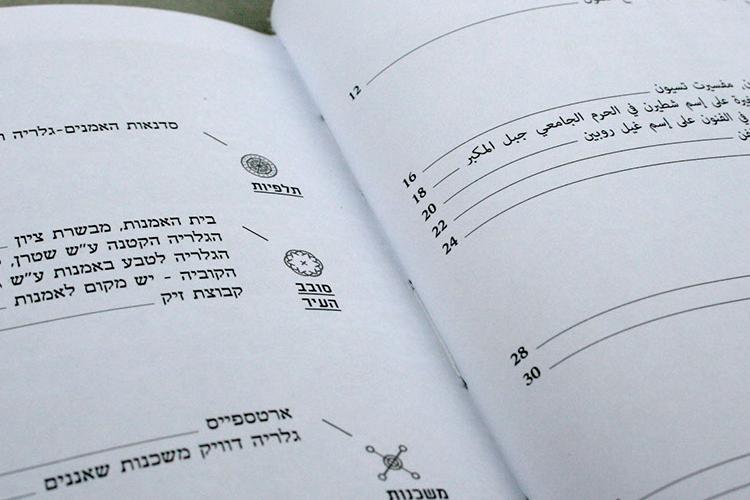 סדנאות האמנים-גלריה
תלפיות
בית האמנות, מבשרת ציון
הגלריה הקטנה ע״ש שטרן,
הגלריה לטבע באמנות ע״ש
הקוביה - יש מקום לאמנות
קבוצת זיק
סובב
העיר
ארטספייס
גלריה דוויק משכנות שאננים
משכנות
12
مفسيرت تسيون
16
على إسم شطيرن في الحرم الجامعي جبل المكبر
18
في الفنون على إسم غيل روبين
20
22
24
28
30